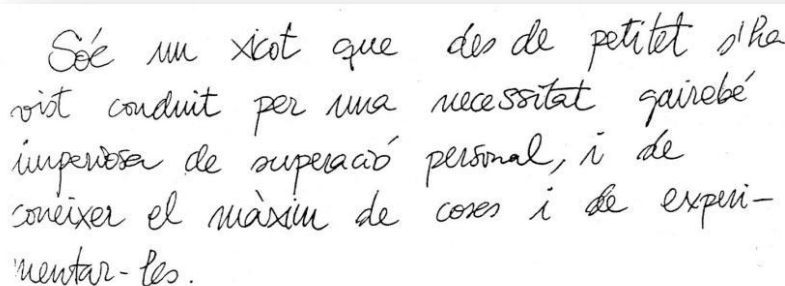 Sóc un xicot que des de petitet s'ha
vist conduit per una necessitat gairebé
imperiosa de superació personal, i de
conèixer el màxim de coses i de experi-
mentar-les.